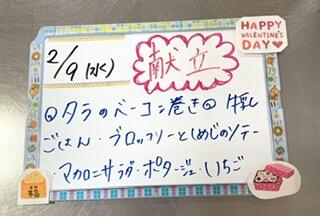 HAPPY
VALENTINE'S
DAY
2/9(水)
献立
◎タラのベーコン巻き◎ 牛乳
ごはん・ブロッコリーとしめじのソテー
・マカロニサラダ・ポタージュ・いちご
福